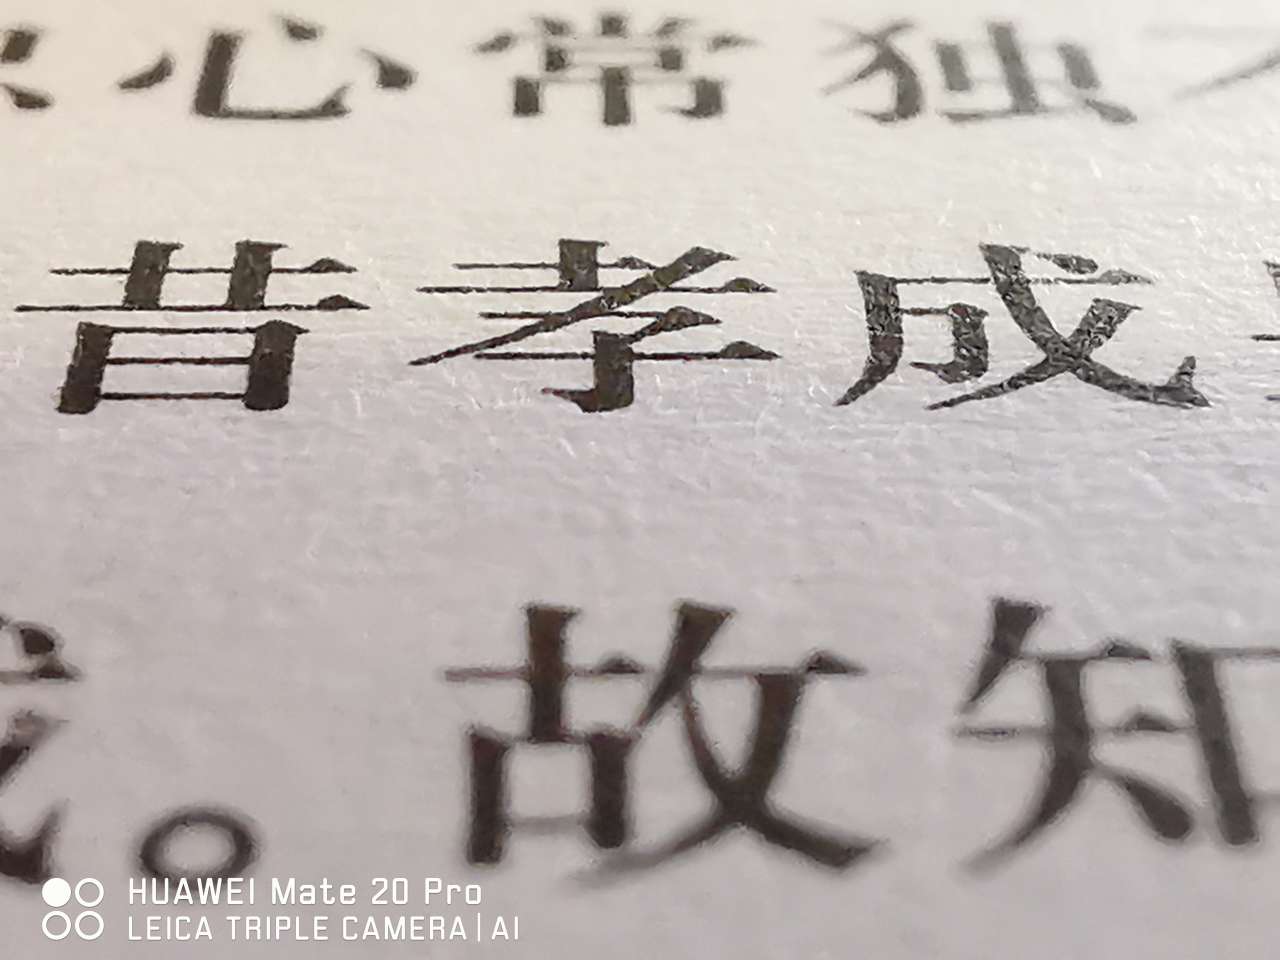 心常独
昔孝成
。故知
HUAWEI Mate 20 Pro
LEICA TRIPLE CAMERA | AI